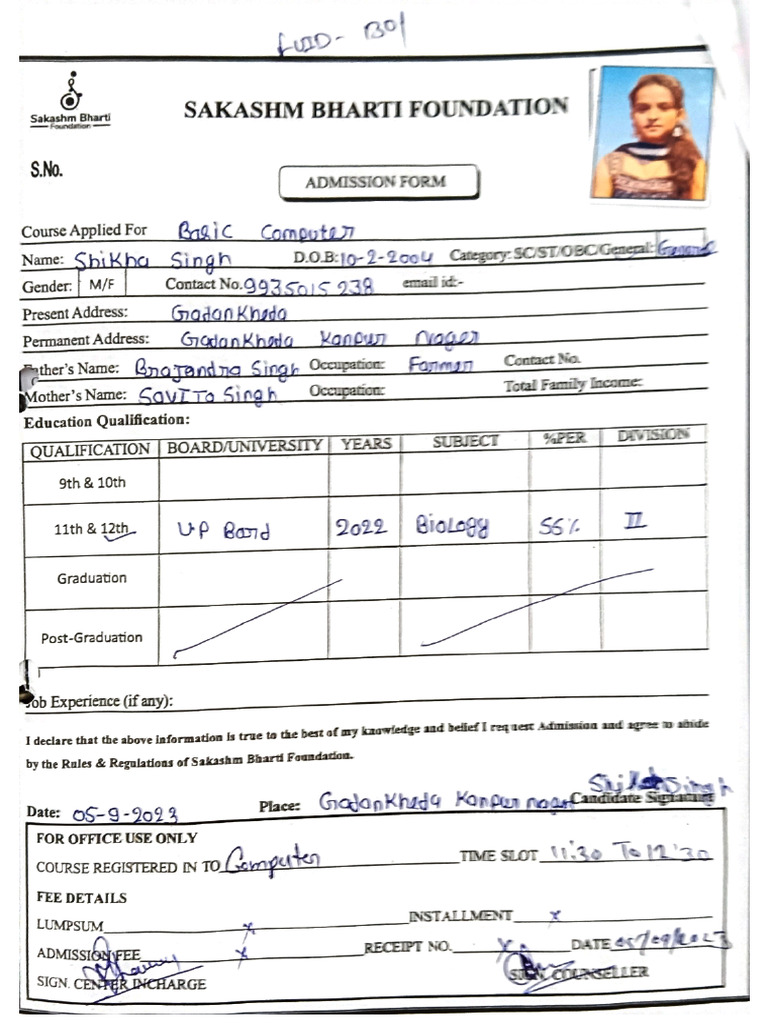 LUID- 1301
Sakashm Bharti
Foundation
SAKASHM BHARTI FOUNDATION
S.No.
ADMISSION FORM
Course Applied For Basic Computer
Name: Shikha Singh D.O.B: 10-2-2004 Category: SC/ST/OBC/General: General
Gender: M/F Contact No. 9935015238 email id:-
Present Address: GadanKheda
Permanent Address: GadanKheda Kanpur Nager
Father's Name: Brajandra Singh Occupation: Farmer Contact No.
Mother's Name: SaVITa Singh Occupation: Total Family Income:
Education Qualification:
QUALIFICATION BOARD/UNIVERSITY YEARS SUBJECT %PER DIVISION
9th & 10th
11th & 12th UP Bord 2022 Biology 55% II
Graduation
Post-Graduation
Job Experience (if any):
I declare that the above information is true to the best of my knowledge and belief I request Admission and agree to abide
by the Rules & Regulations of Sakashm Bharti Foundation.
Date: 05-9-2023 Place: GadanKheda Kanpur nager Candidate Signature
Singh
FOR OFFICE USE ONLY
COURSE REGISTERED IN TO Computer TIME SLOT 11:30 To 12'30
FEE DETAILS
LUMPSUM x INSTALLMENT x
ADMISSION FEE x RECEIPT NO. x DATE 05/09/2023
SIGN. CENTER INCHARGE SIGN. COUNSELLER